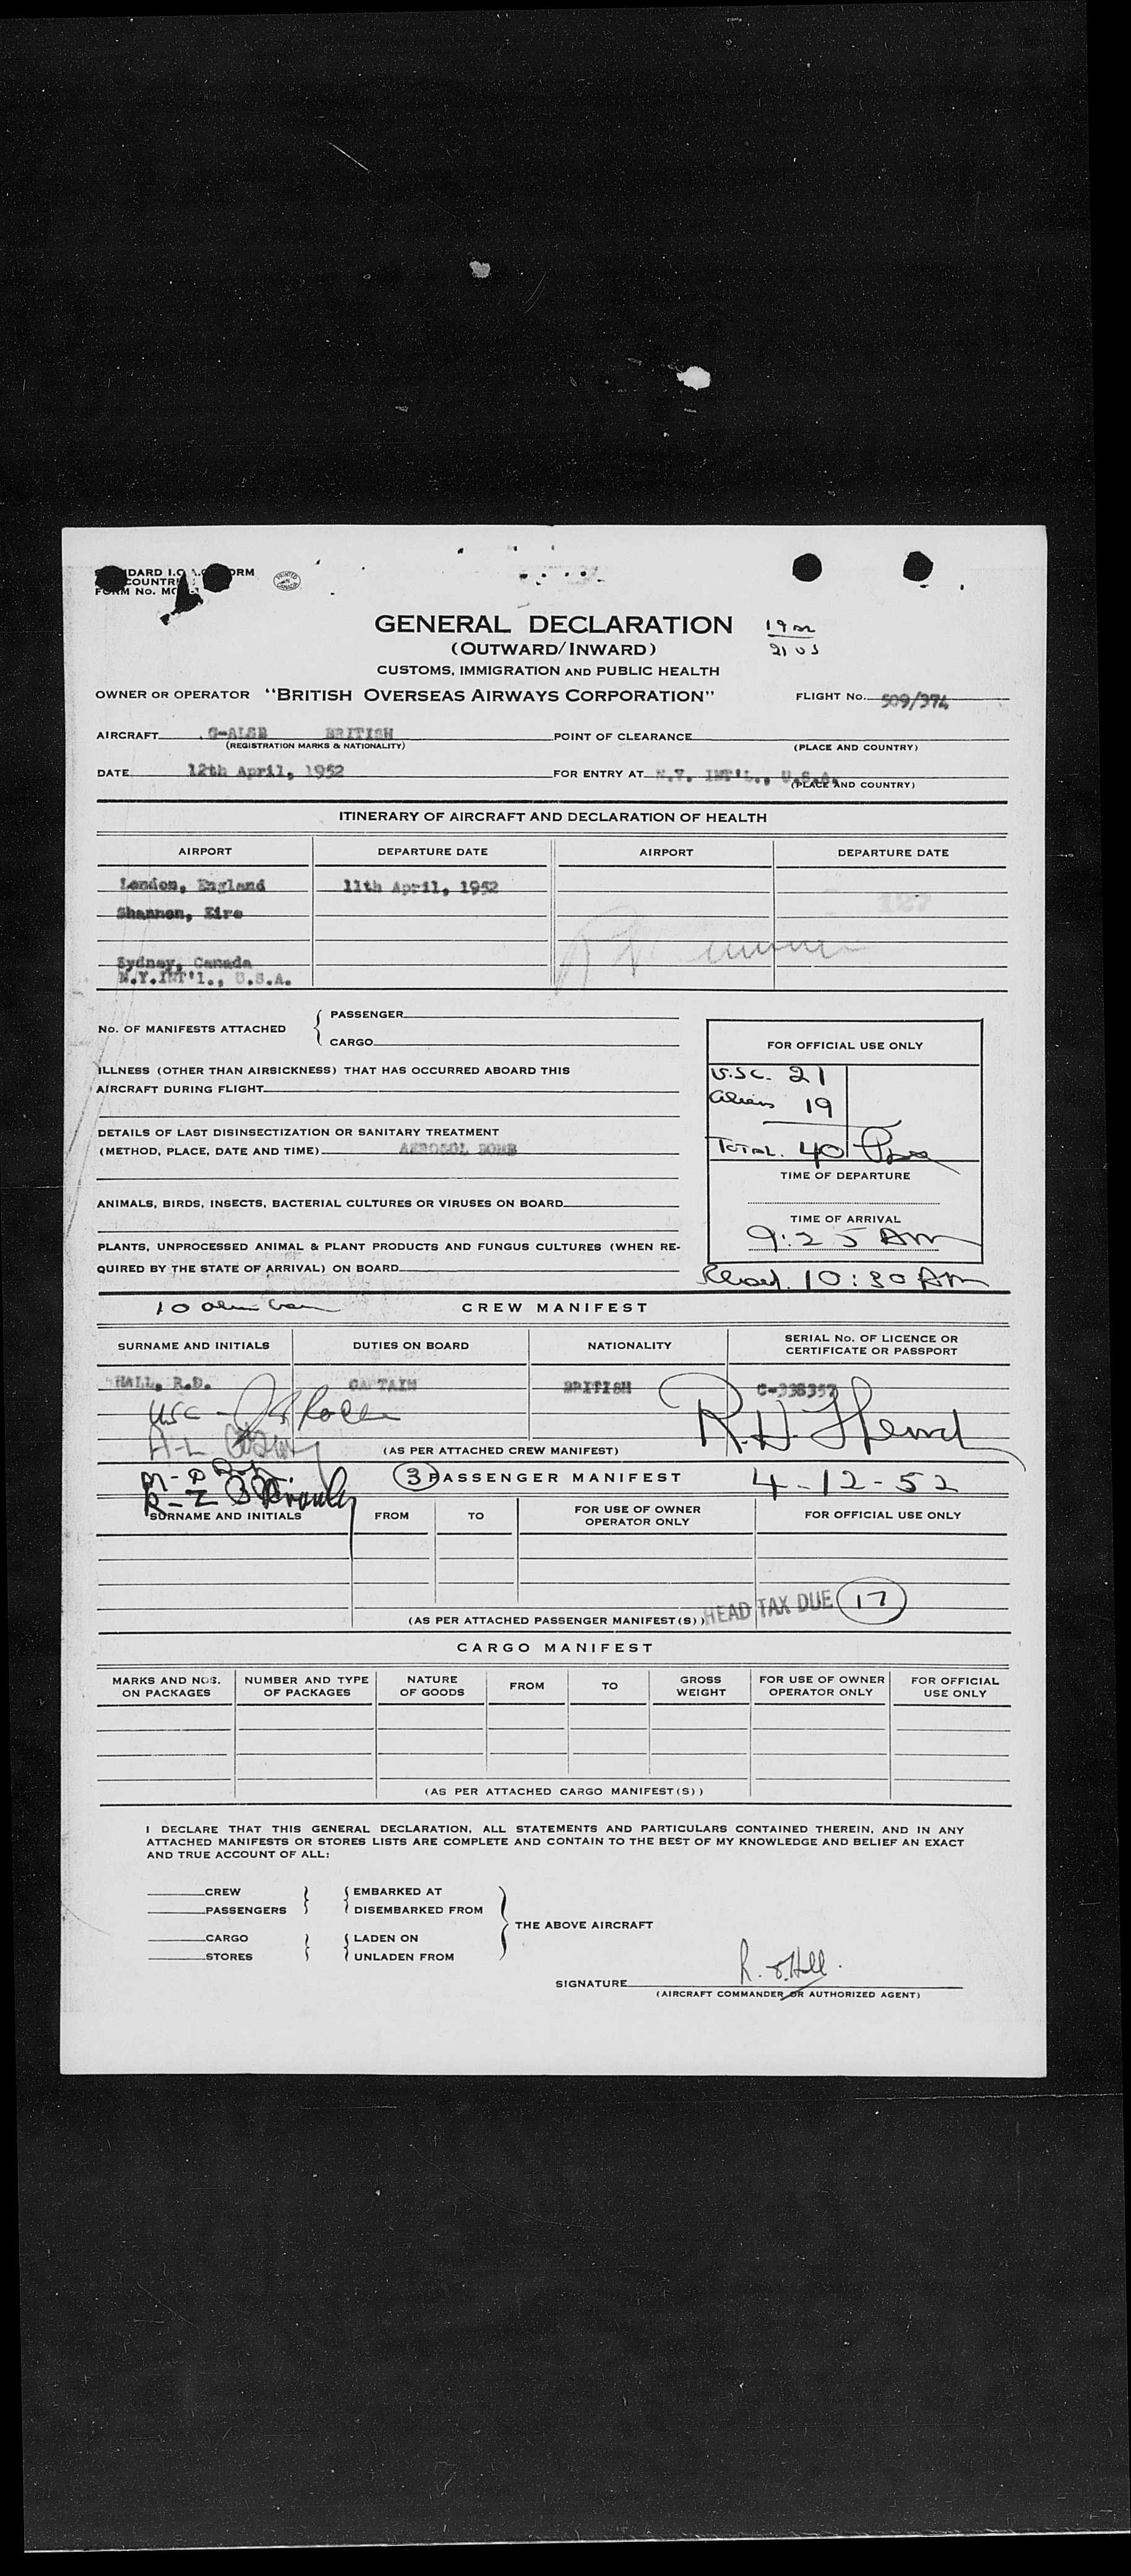 FORM No.
PRINTED IN CANADA
GENERAL DECLARATION
(OUTWARD/INWARD)
19
21 US
CUSTOMS, IMMIGRATION AND PUBLIC HEALTH
OWNER OR OPERATOR "BRITISH OVERSEAS AIRWAYS CORPORATION" FLIGHT No. 509/374
AIRCRAFT G-ALSB BRITISH POINT OF CLEARANCE
(REGISTRATION MARKS & NATIONALITY) (PLACE AND COUNTRY)
DATE 12th April, 1952 FOR ENTRY AT N.Y. INT'L., U.S.A.
(PLACE AND COUNTRY)
ITINERARY OF AIRCRAFT AND DECLARATION OF HEALTH
AIRPORT DEPARTURE DATE AIRPORT DEPARTURE DATE
London, England 11th April, 1952
Shannon, Eire
Sydney, Canada
N.Y.INT'l., U.S.A.
No. OF MANIFESTS ATTACHED { PASSENGER
CARGO
ILLNESS (OTHER THAN AIRSICKNESS) THAT HAS OCCURRED ABOARD THIS
AIRCRAFT DURING FLIGHT
DETAILS OF LAST DISINSECTIZATION OR SANITARY TREATMENT
(METHOD, PLACE, DATE AND TIME) AEROSOL BOMB
ANIMALS, BIRDS, INSECTS, BACTERIAL CULTURES OR VIRUSES ON BOARD
PLANTS, UNPROCESSED ANIMAL & PLANT PRODUCTS AND FUNGUS CULTURES (WHEN RE-
QUIRED BY THE STATE OF ARRIVAL) ON BOARD
FOR OFFICIAL USE ONLY
U.S.C. 21
Aliens 19
TOTAL. 40
TIME OF DEPARTURE
TIME OF ARRIVAL
9:25 AM
10:30 AM
10
CREW MANIFEST
SURNAME AND INITIALS DUTIES ON BOARD NATIONALITY SERIAL No. OF LICENCE OR
CERTIFICATE OR PASSPORT
HALL, R.D. CAPTAIN BRITISH C-338357
USC -
A-L
(AS PER ATTACHED CREW MANIFEST)
3 PASSENGER MANIFEST 4-12-52
SURNAME AND INITIALS FROM TO FOR USE OF OWNER
OPERATOR ONLY FOR OFFICIAL USE ONLY
(AS PER ATTACHED PASSENGER MANIFEST(S)) HEAD TAX DUE 17
CARGO MANIFEST
MARKS AND NOS.
ON PACKAGES NUMBER AND TYPE
OF PACKAGES NATURE
OF GOODS FROM TO GROSS
WEIGHT FOR USE OF OWNER
OPERATOR ONLY FOR OFFICIAL
USE ONLY
(AS PER ATTACHED CARGO MANIFEST(S))
I DECLARE THAT THIS GENERAL DECLARATION, ALL STATEMENTS AND PARTICULARS CONTAINED THEREIN, AND IN ANY
ATTACHED MANIFESTS OR STORES LISTS ARE COMPLETE AND CONTAIN TO THE BEST OF MY KNOWLEDGE AND BELIEF AN EXACT
AND TRUE ACCOUNT OF ALL:
CREW } { EMBARKED AT
PASSENGERS DISEMBARKED FROM
THE ABOVE AIRCRAFT
CARGO } { LADEN ON
STORES UNLADEN FROM
SIGNATURE
(AIRCRAFT COMMANDER OR AUTHORIZED AGENT)